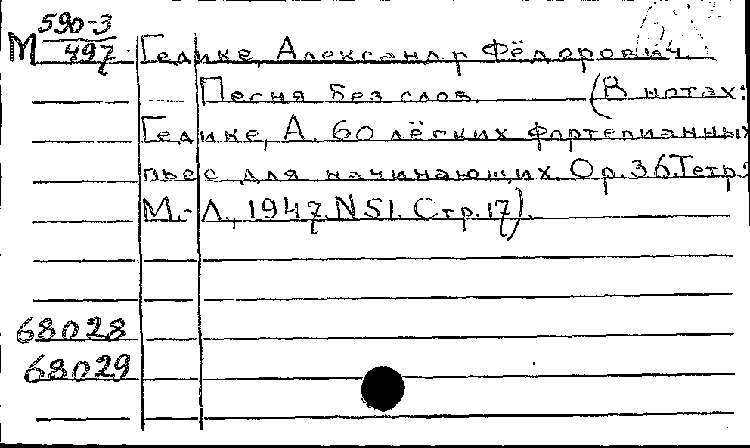 М 590-3
497 Гедике, Александр Фёдорович.
Песня без слов. (В нотах:
Гедике, А. 60 лёгких фортепианных
пьес для начинающих. Ор. 36. Тетр.
М.-Л., 1947. N 51. Стр. 17).
68028
68029